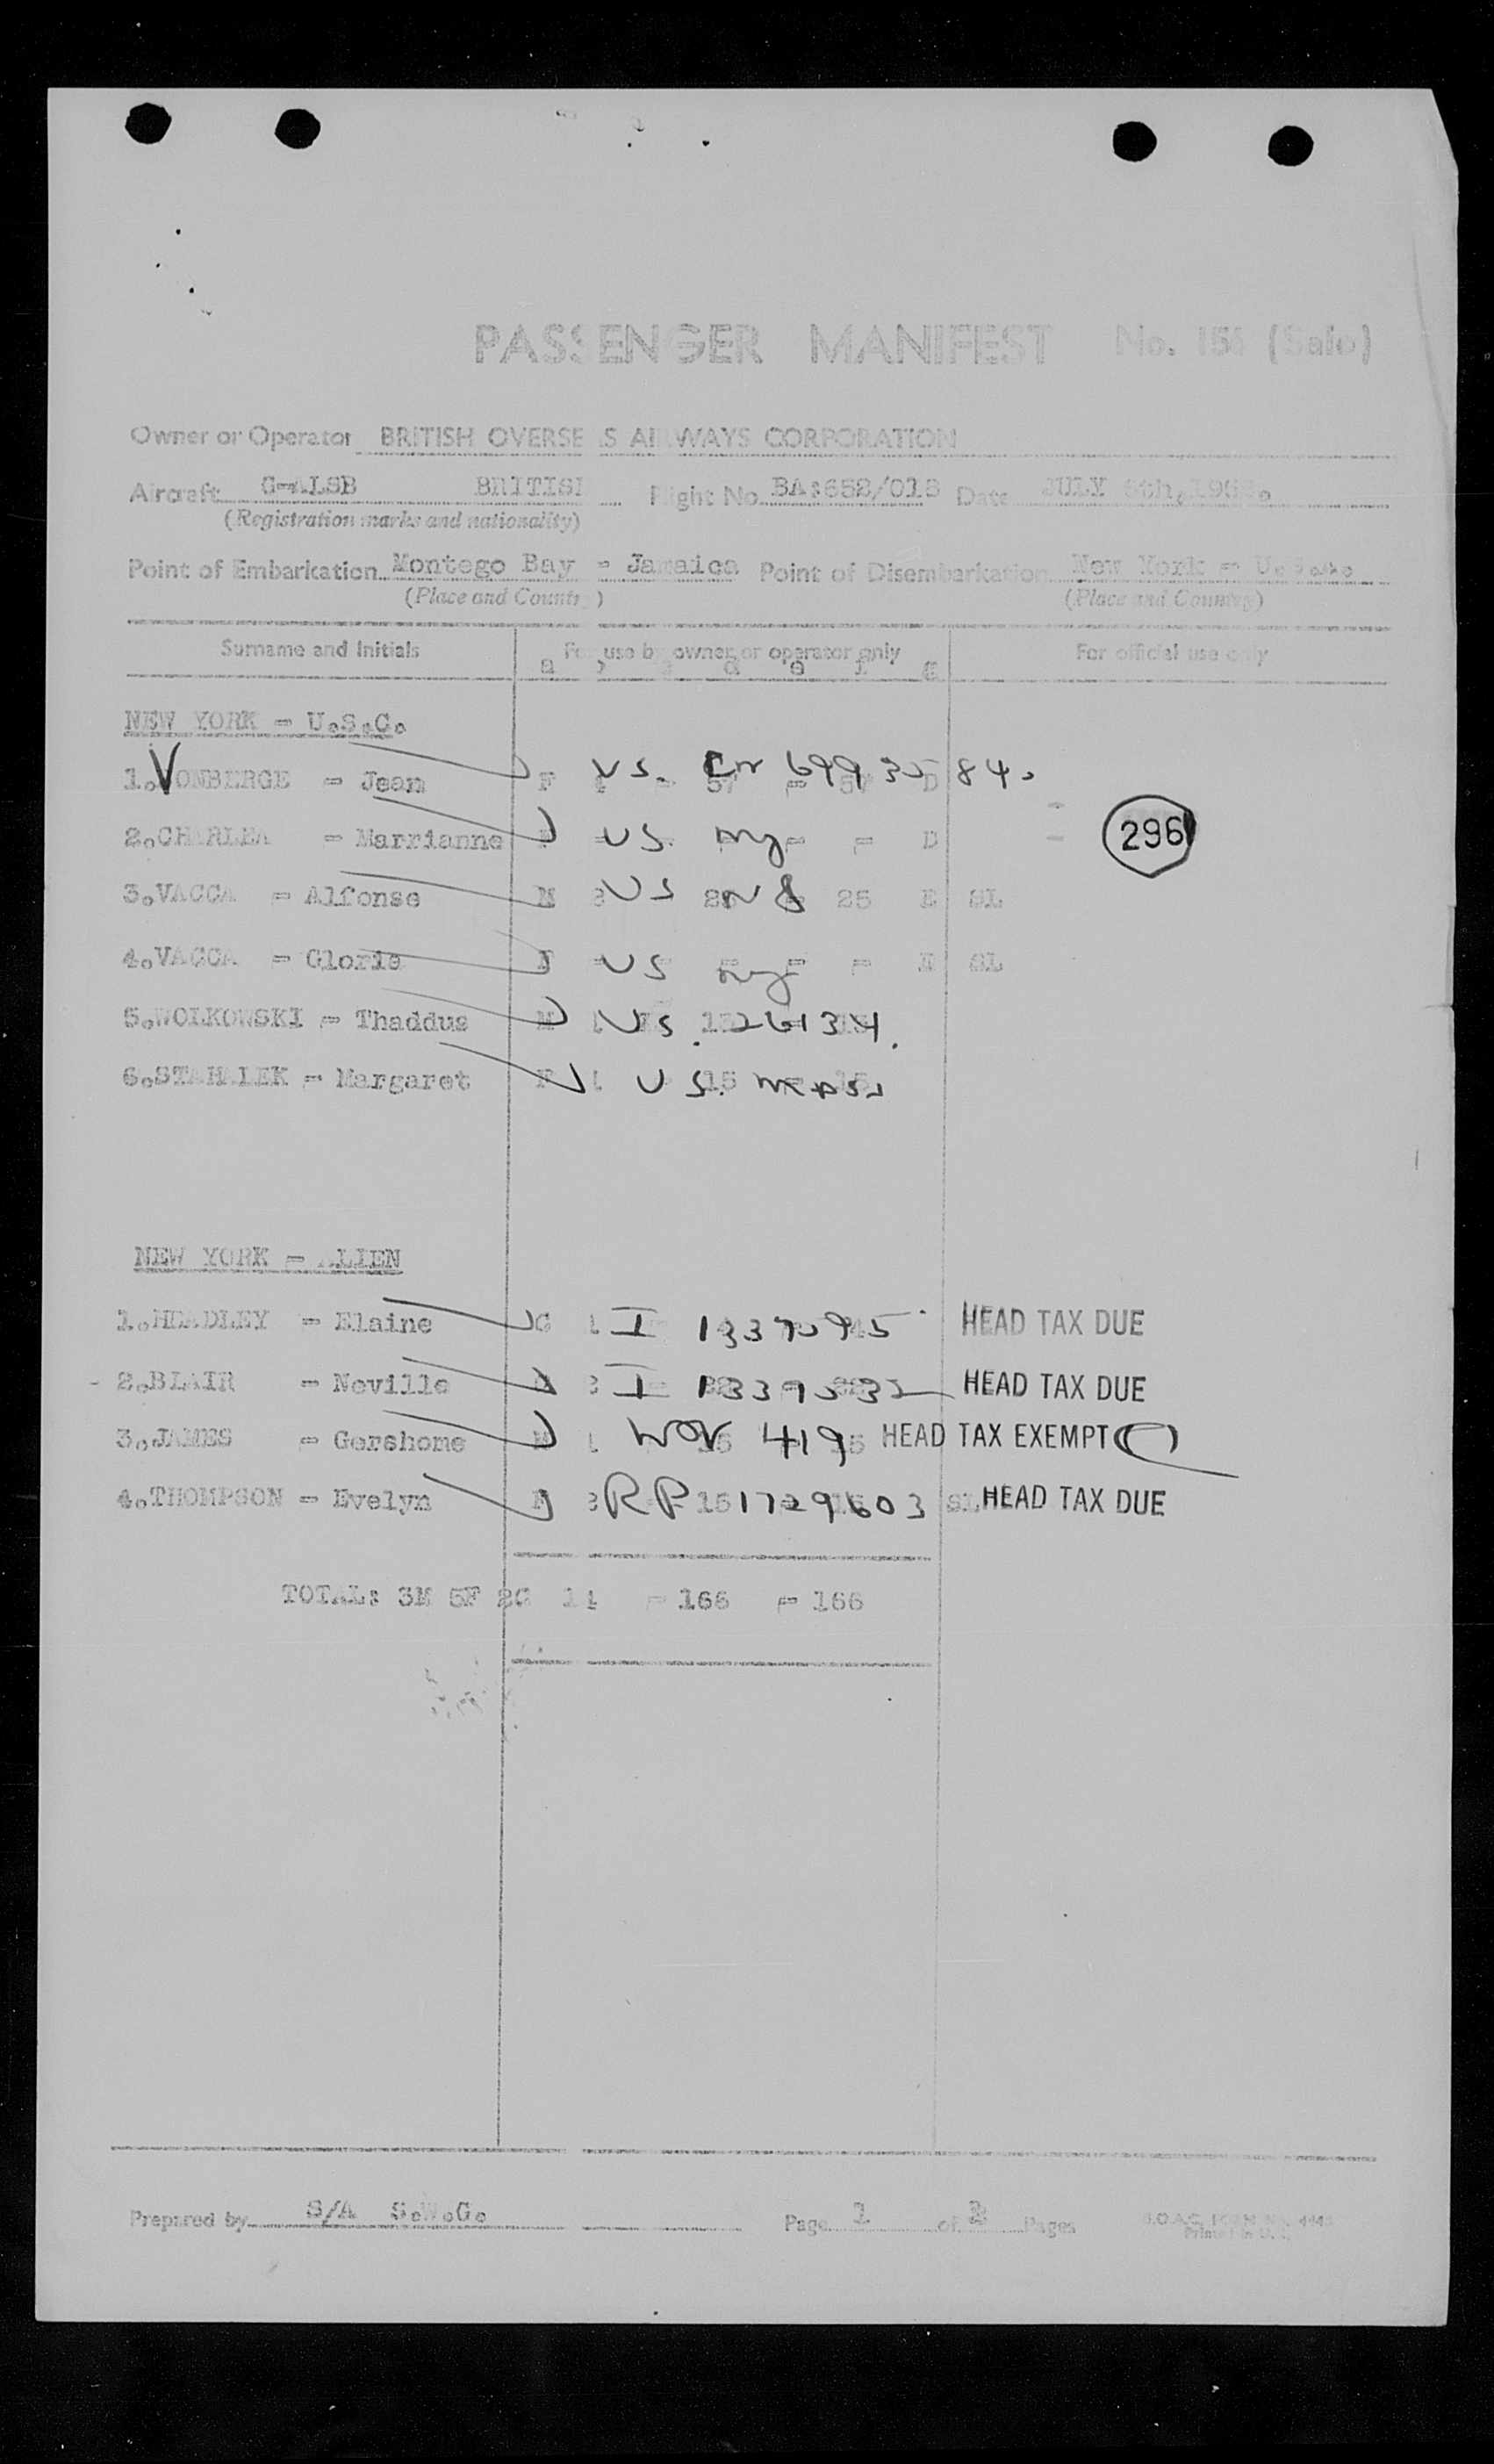 PASSENGER MANIFEST No. 156 (Saio)
Owner or Operator BRITISH OVERSEAS AIRWAYS CORPORATION
Aircraft G-ALSB BRITISH Flight No. BA:652/018 Date JULY
(Registration marks and nationality)
Point of Embarkation Montego Bay = Jamaica Point of Disembarkation New York = U.S.A.
(Place and Country) (Place and Country)
Surname and Initials For use by owner or operator only For official use only
a b c d e f g
NEW YORK = U.S.C.
1.VONBERGE = Jean F US. 699 35 84.
2.CHARLEA = Marrianne F US. D
3.VACCA = Alfonse M US 25 E SL
4.VACCA = Gloria F US SL
5.WOLKOWSKI = Thaddus M US. 26134.
6.STAHALEK = Margaret F US. Mass
296
NEW YORK = ALIEN
1.HEADLEY = Elaine G I 1337095 HEAD TAX DUE
2.BLAIR = Neville I 1339532 HEAD TAX DUE
3.JAMES = Gershome M 419 HEAD TAX EXEMPT
4.THOMPSON = Evelyn F RP 1729603 SL HEAD TAX DUE
TOTAL: 3M 5F 2C 14 = 166 = 166
Prepared by S/A S.W.G. Page 1 of 2 Pages B.O.A.C. FORM No.
Printed in U.K.